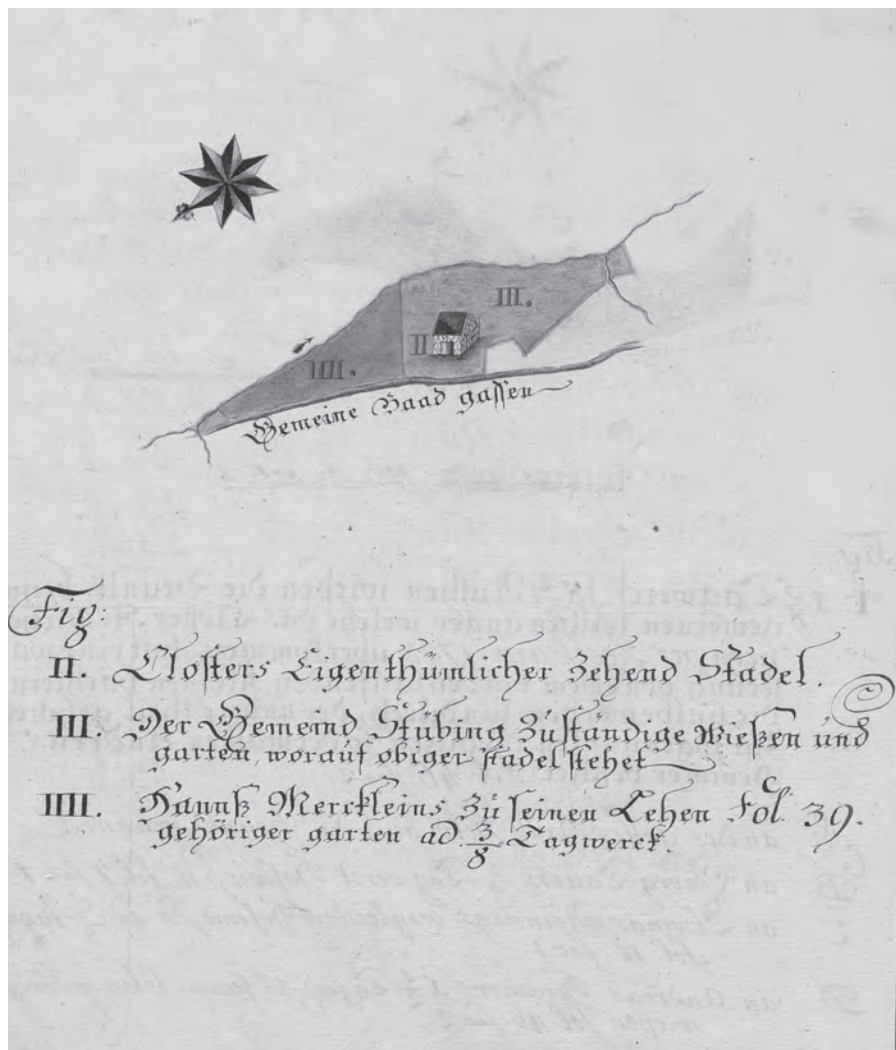 III.
II
IIII.
Gemeine Baad gassen
Fig:
II. Closters Eigenthümlicher Zehend Stadel.
III. Der Gemeind Stübing Zuständige Wießen und
garten, worauf obiger stadel stehet
IIII. Hannß Merckleins Zu seinen Lehen Fol. 39.
gehöriger garten ad. 3/8 Tagwerck.